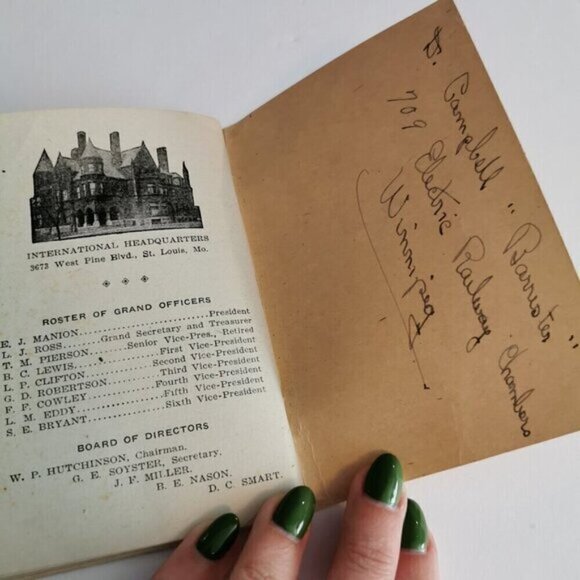 INTERNATIONAL HEADQUARTERS
3673 West Pine Blvd., St. Louis, Mo.
ROSTER OF GRAND OFFICERS
E. J. MANION..........President
L. J. ROSS..........Grand Secretary and Treasurer
T. M. PIERSON..........Senior Vice-Pres., Retired
B. C. LEWIS..........First Vice-President
L. P. CLIFTON..........Second Vice-President
G. D. ROBERTSON..........Third Vice-President
F. F. COWLEY..........Fourth Vice-President
L. M. EDDY..........Fifth Vice-President
S. E. BRYANT..........Sixth Vice-President
BOARD OF DIRECTORS
W. P. HUTCHINSON, Chairman.
G. E. SOYSTER, Secretary.
J. F. MILLER.
B. E. NASON.
D. C. SMART.
D. Campbell "Barrister"
709 Electric Railway Chambers
Winnipeg